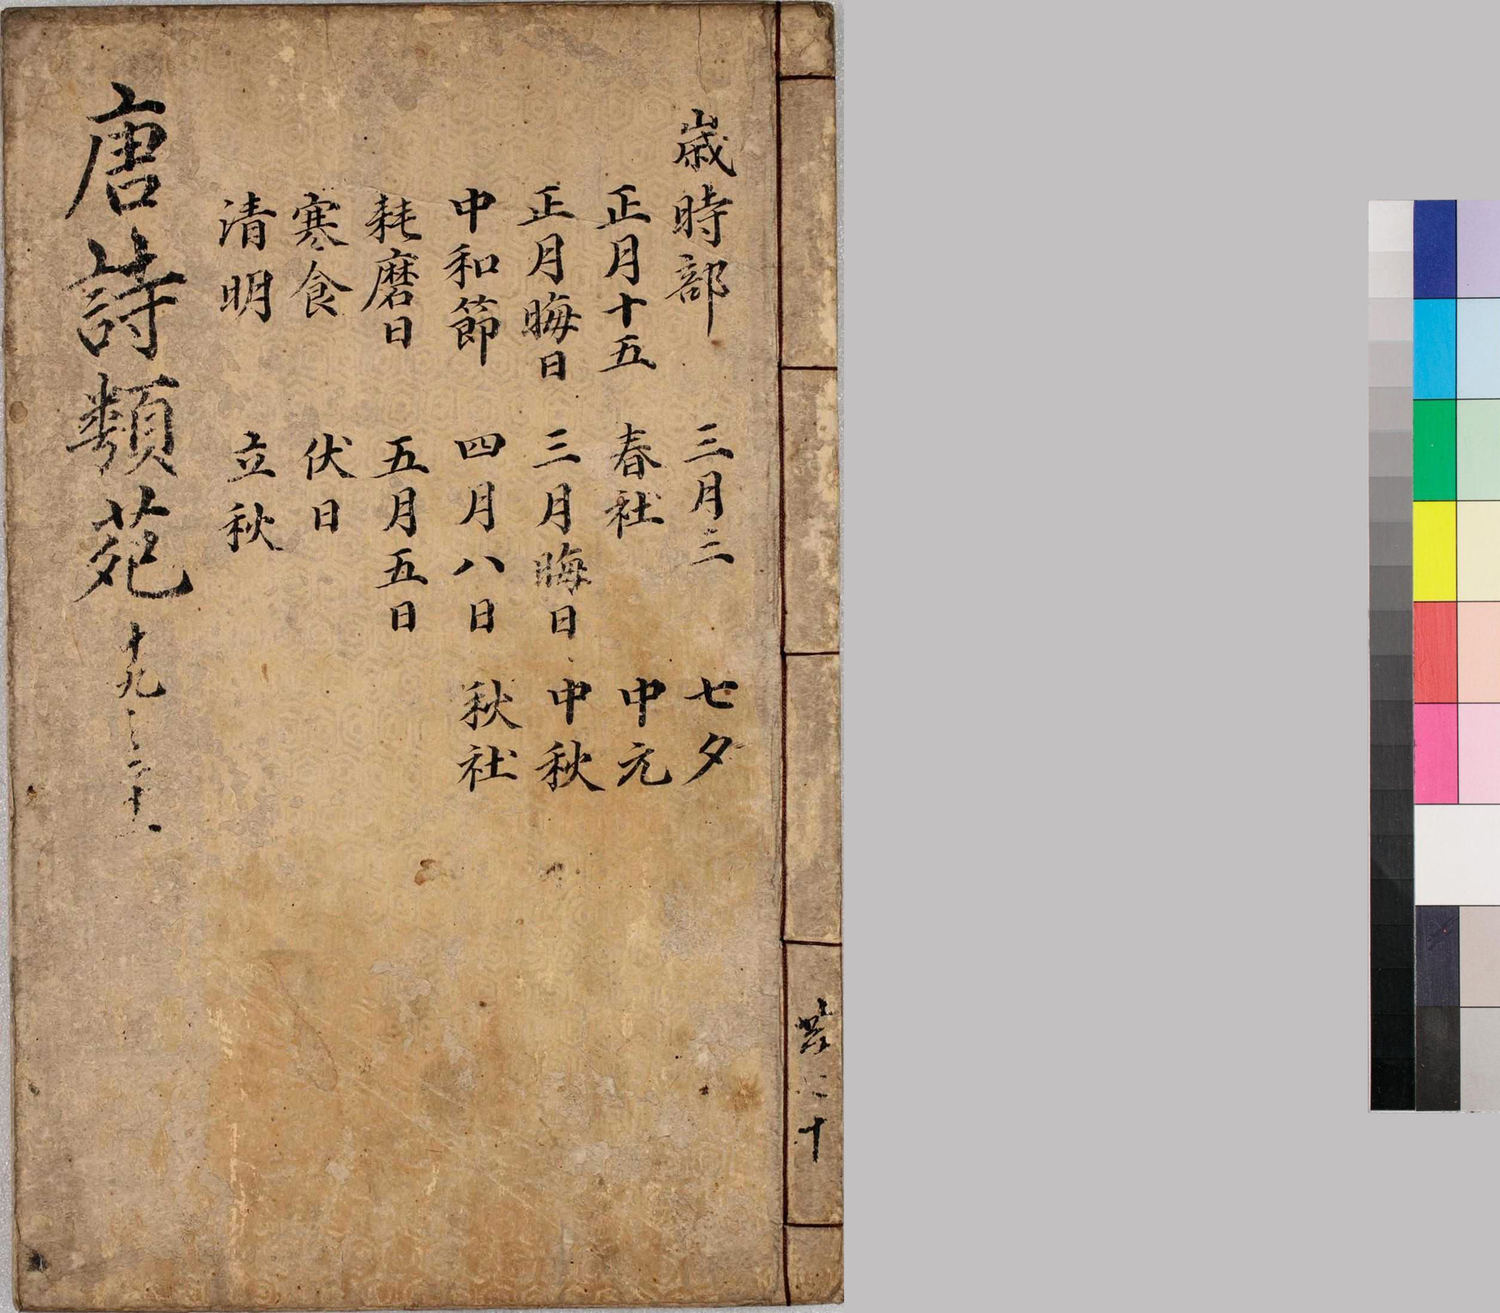 歲時部
正月十五
正月晦日
中和節
耗磨日
寒食
清明
三月三
春社
三月晦日
四月八日
五月五日
伏日
立秋
七夕
中元
中秋
秋社
唐詩類苑
十九之二十
共
十